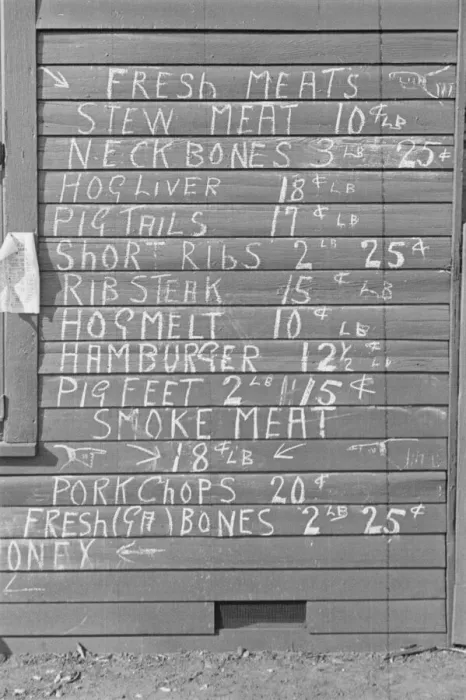 FRESh MEATS
STEW MEAT 10¢ LB
NECKBONES 3 LB 25¢
HOGLIVER 18¢ LB
PIGTAILS 17¢ LB
ShORT RIbS 2 LB 25¢
RIBSTEAK 15¢ LB
HOGMELT 10¢ LB
HAMBURGER 12½¢ LB
PIGFEET 2 LB 15¢
SMOKE MEAT
18¢ LB
PORKChOPS 20¢
FRESH (GA) BONES 2 LB 25¢
ONEY